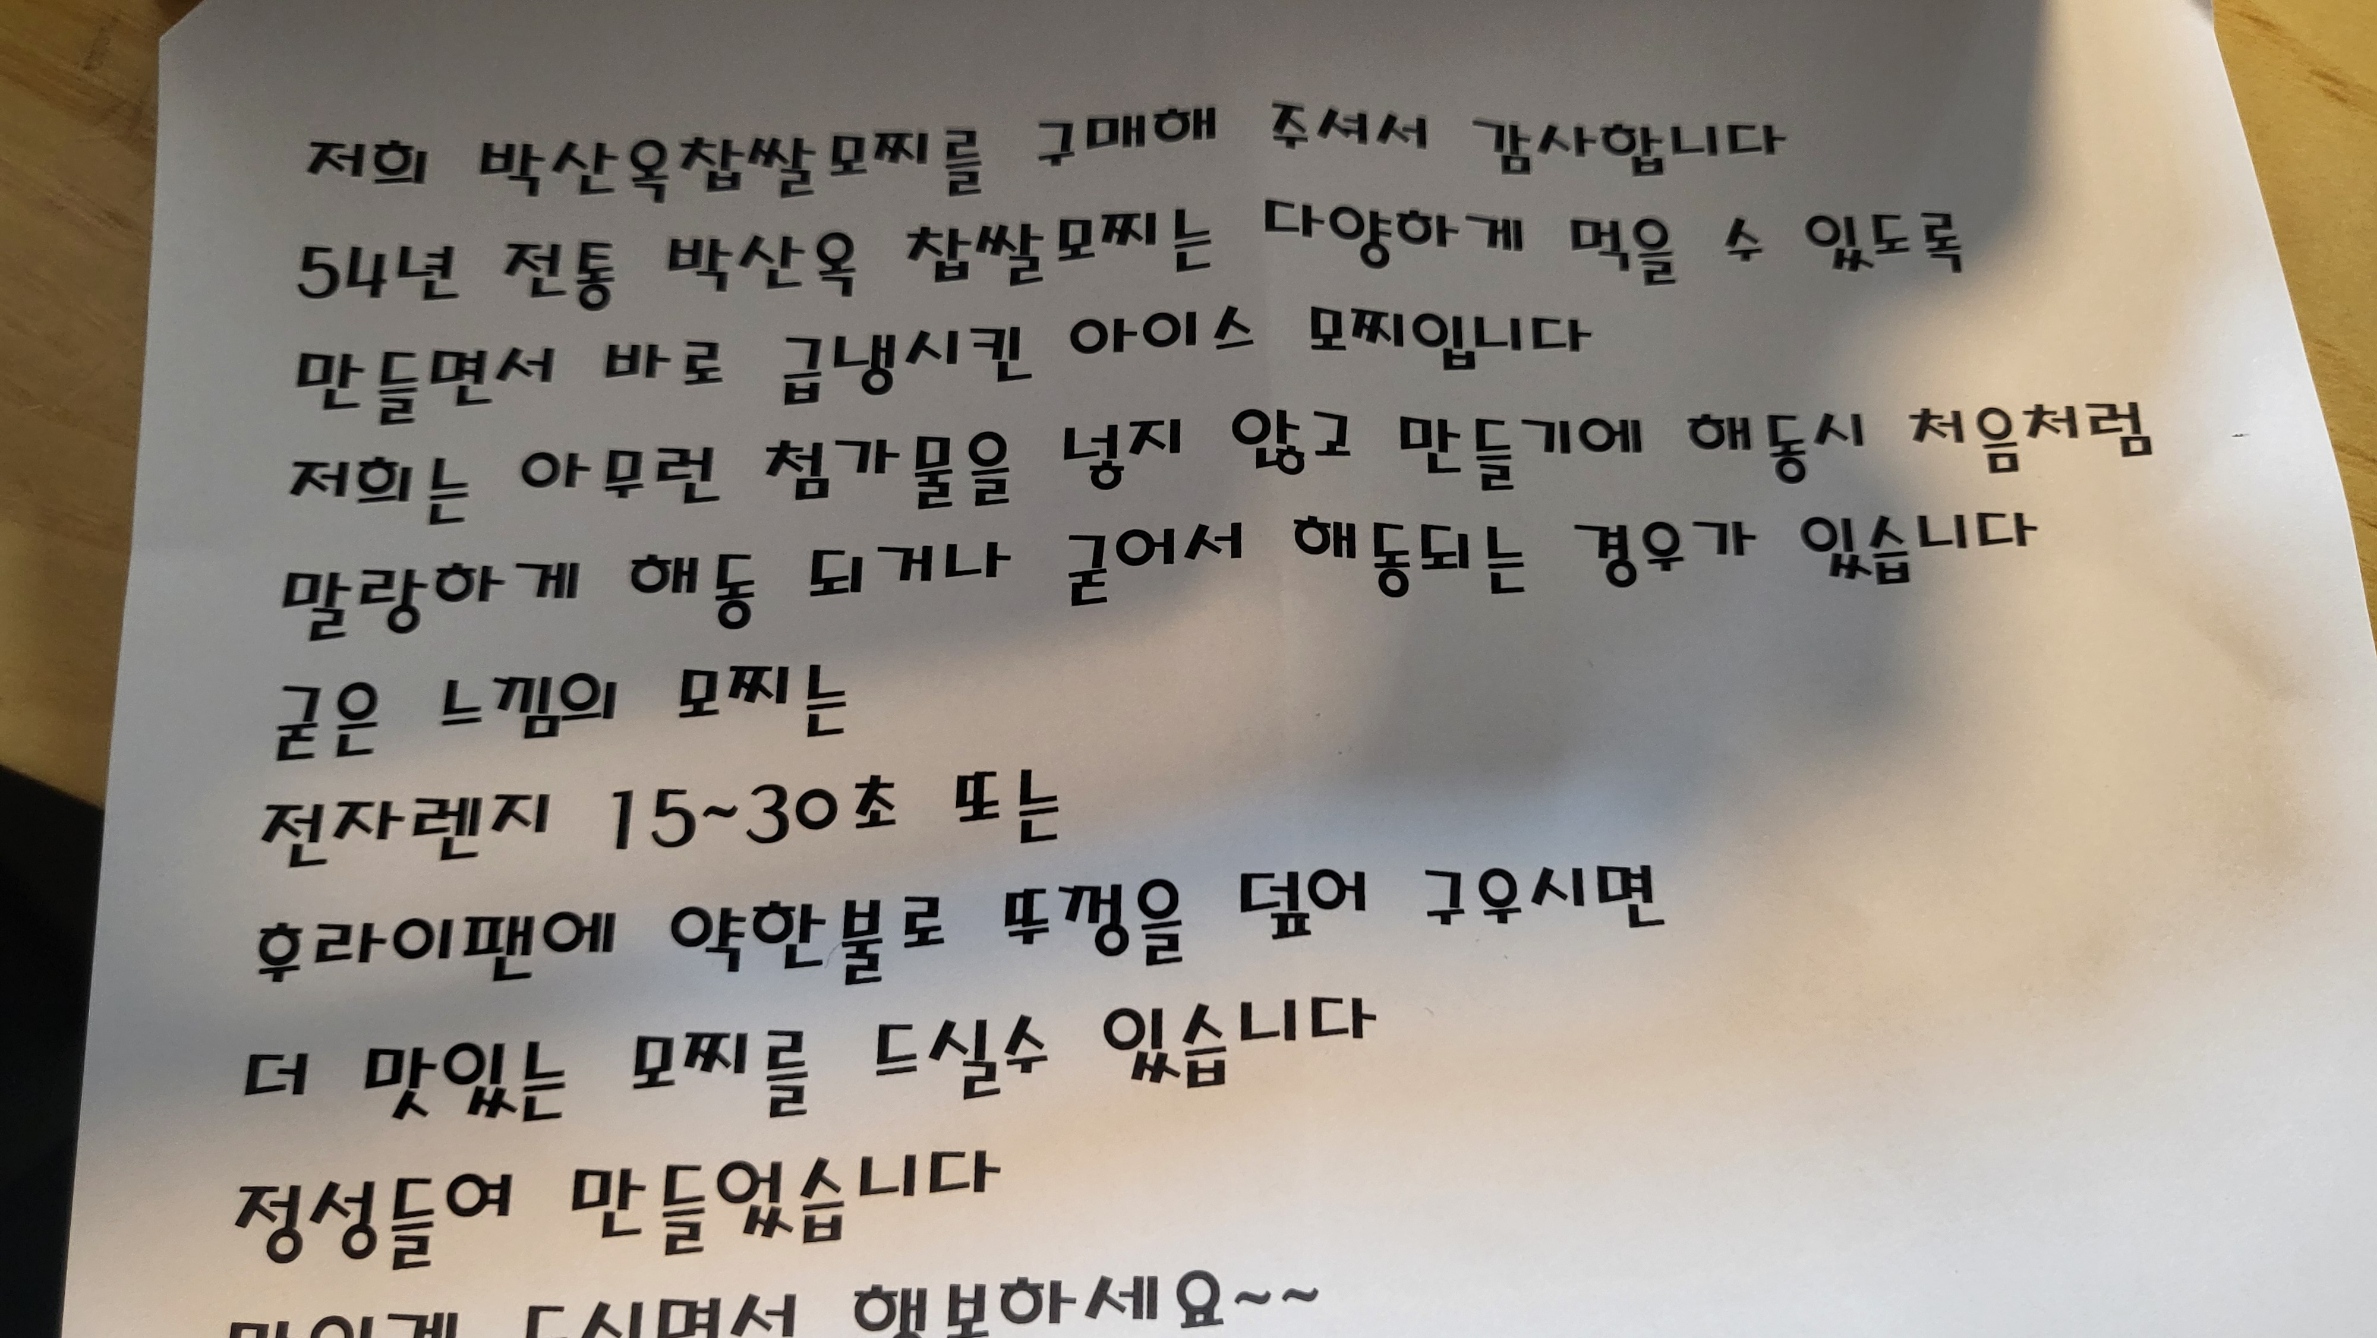 저희 박산옥찹쌀모찌를 구매해 주셔서 감사합니다
54년 전통 박산옥 찹쌀모찌는 다양하게 먹을 수 있도록
만들면서 바로 급냉시킨 아이스 모찌입니다
저희는 아무런 첨가물을 넣지 않고 만들기에 해동시 처음처럼
말랑하게 해동 되거나 굳어서 해동되는 경우가 있습니다
굳은 느낌의 모찌는
전자렌지 15~30초 또는
후라이팬에 약한불로 뚜껑을 덮어 구우시면
더 맛있는 모찌를 드실수 있습니다
정성들여 만들었습니다
맛있게 드시면서 행복하세요~~